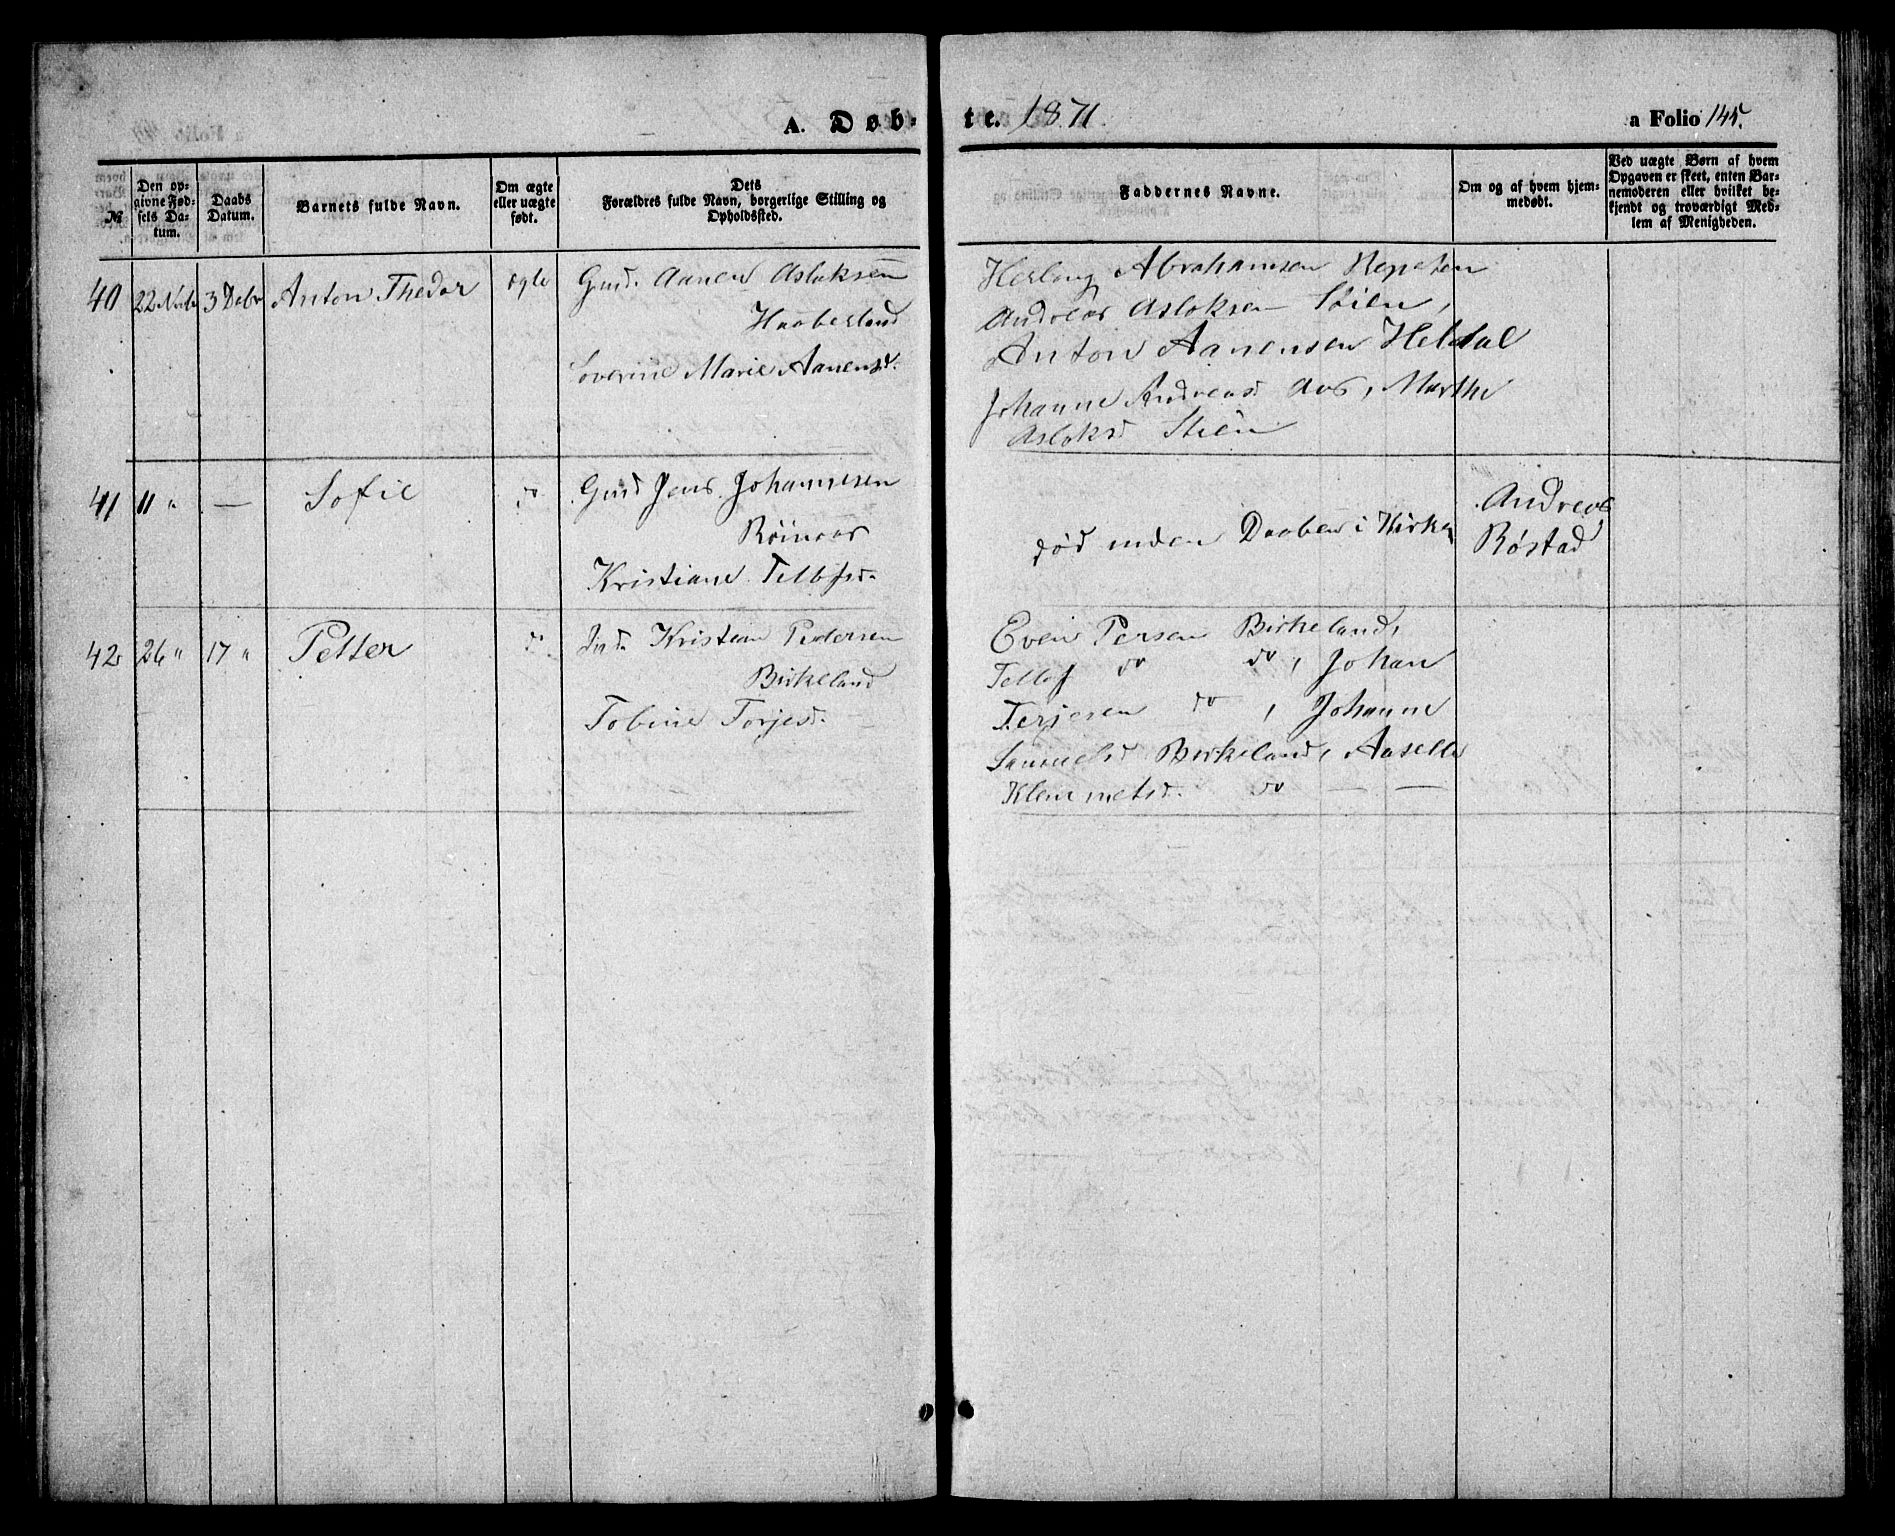 A. Døb- te. 1871. a Folio 145.
№
Den op-
givne Fød-
sels Da-
tum.
Daabs
Datum.
Barnets fulde Navn.
Om ægte
eller uægte
født.
Dets
Forældres fulde Navn, borgerlige Stilling og
Opholdssted.
Faddernes Navne.
Om og af hvem hjem-
medøbt.
Ved uægte Børn af hvem
Opgaven er skeet, enten Bar-
nemoderen eller hvilket be-
kjendt og troværdigt Med-
lem af Menigheden.
40 22 Novbr 3 Debr Anton Thedor ægte
Gmd. Aanen Aslaksen
Haaberland
Severine Marie Aanensd.
Abrahamsen Repsten
Andreas Aslaksen Stien,
Anton Aanensen Heldal
Johanne Andreasd aas, Marthe
Aslaksd Stien
41 11 " — Sofie do
Gmd Jens Johannesen
Røinaas
Kristiane Tellefsd.
død inden Daaben i Kirken
Andreas
Røstad
42 26 " 17 " Petter do
Ind. Kristian Pedersen
Birkeland
Tobine Torjesd.
Even Persen Birkeland,
Tellef do do, Johan
Terjesen do, Johanne
Samuelsd Birkeland, Aaselle
Klemmetsd. do — —